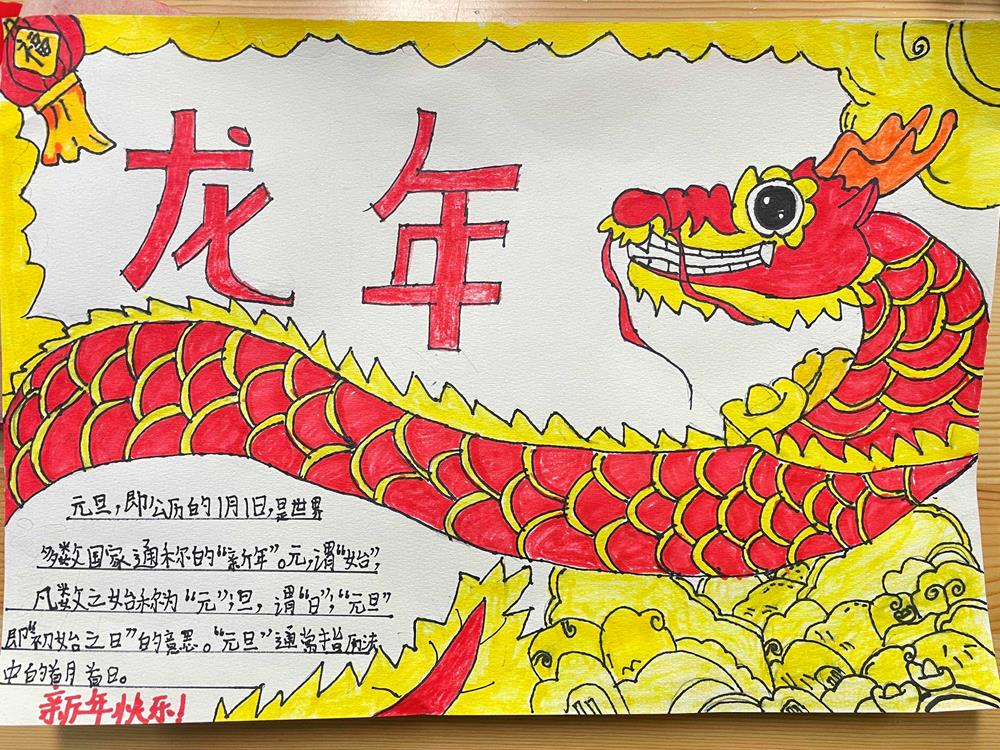 福
龙年
元旦,即公历的1月1日,是世界
多数国家通称的“新年”。元,谓“始”,
凡数之始称为“元”;旦,谓“日”;“元旦”
即“初始之日”的意思。“元旦”通常指历法
中的首月首日。
新年快乐!